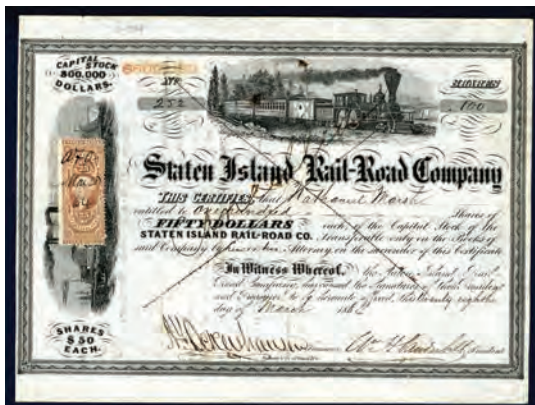 CAPITAL STOCK
800.000
DOLLARS.
No
252
100
Staten Island Rail-Road Company
THIS CERTIFIES, that Nathaniel Marsh
entitled to One hundred Shares of
FIFTY DOLLARS each, of the Capital Stock of the
STATEN ISLAND RAIL-ROAD CO. Transferable only on the Books of
said Company by him or his Attorney on the surrender of this Certificate
In Witness Whereof, the Staten Island Rail-
Road Company, has caused the Signatures of their President
and Treasurer to be hereunto affixed, this twenty eighth
day of March 186
SHARES
$50
EACH.